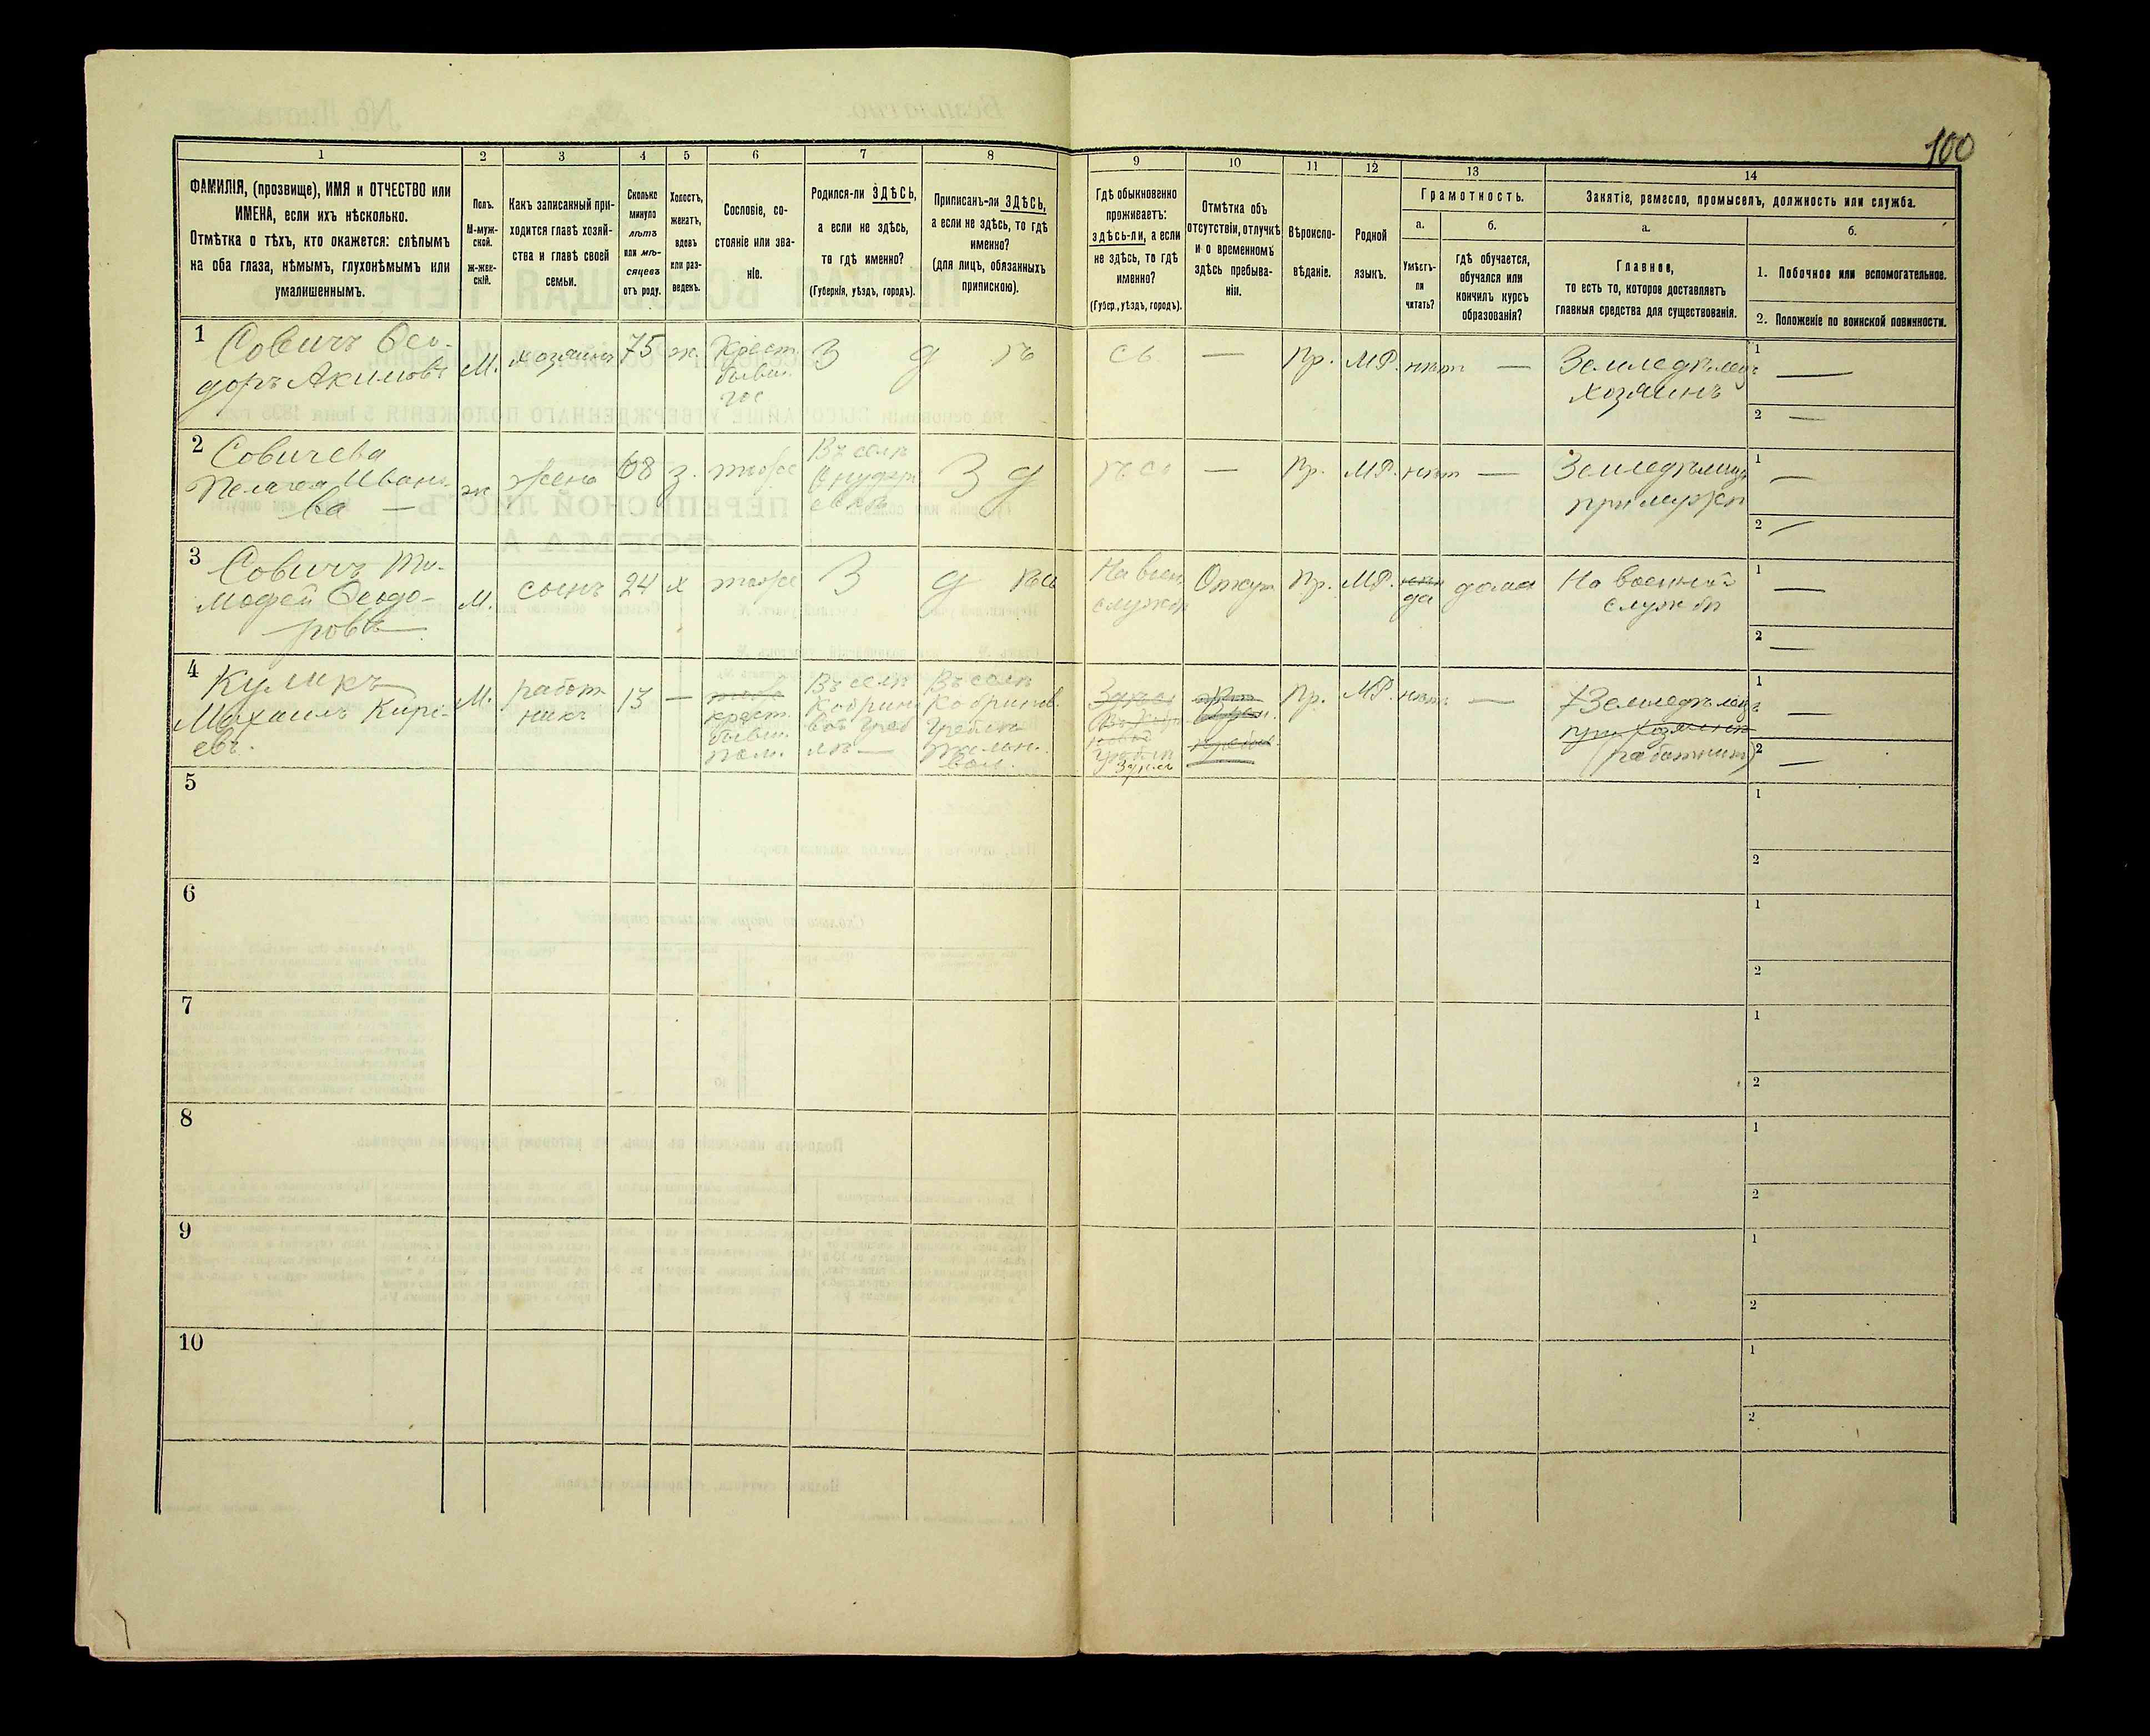 100
1 2 3 4 5 6 7 8 9 10 11 12 13 14
ФАМИЛІЯ, (прозвище), ИМЯ и ОТЧЕСТВО или
ИМЕНА, если ихъ нѣсколько.
Отмѣтка о тѣхъ, кто окажется: слѣпымъ
на оба глаза, нѣмымъ, глухонѣмымъ или
умалишеннымъ.
Полъ.
М-муж-
ской.
Ж-жен-
скій.
Какъ записанный при-
ходится главѣ хозяй-
ства и главѣ своей
семьи.
Сколько
минуло
лѣтъ
или мѣ-
сяцевъ
отъ роду.
Холостъ,
женатъ,
вдовъ
или раз-
веденъ.
Сословіе, со-
стояніе или зва-
ніе.
Родился-ли ЗДѢСЬ,
а если не здѣсь,
то гдѣ именно?
(Губернія, уѣздъ, городъ).
Приписанъ-ли ЗДѢСЬ,
а если не здѣсь, то гдѣ
именно?
(для лицъ, обязанныхъ
припискою).
Гдѣ обыкновенно
проживаетъ:
здѣсь-ли, а если
не здѣсь, то гдѣ
именно?
(Губер., уѣздъ, городъ).
Отмѣтка объ
отсутствіи, отлучкѣ
и о временномъ
здѣсь пребыва-
ніи.
Вѣроиспо-
вѣданіе.
Родной
языкъ.
Грамотность.
а.
Умѣетъ-
ли
читать?
б.
гдѣ обучается,
обучался или
кончилъ курсъ
образованія?
Занятіе, ремесло, промыселъ, должность или служба.
а.
Главное,
то есть то, которое доставляетъ
главныя средства для существованія.
б.
1. Побочное или вспомогательное.
2. Положеніе по воинской повинности.
1 Совичъ Ѳео-
доръ Акимовъ
М. хозяинъ 75 ж. Крест.
бывш.
гос
З д ѣ сь — Пр. МР. нѣтъ —
Земледѣлецъ
хозяинъ
1 —
2 —
2 Совичева
Пелагея Ивано-
ва —
ж жена 68 з. тоже
Въ селѣ
З д ѣ сь — Пр. МР. нѣт —
Земледѣлица
при мужѣ
1 —
2 —
3 Совичъ Ти-
мофей Ѳеодо-
ровъ
М. сынъ 24 х тоже З д ѣсь
На воен.
службѣ
Пр. МР. да дома
На военной
службѣ
1 —
2 —
4 Куликъ
Михаилъ Кирі-
евъ.
М. работ
никъ
13 —
крест.
бывш.
пом.
Въ селѣ
Кобрин
Въ селѣ
Кобринов.
Греблѣ
вол.
Здѣсь
Пр. МР. нѣтъ —
Земледѣлецъ
при хозяинѣ
(работникъ)
1 —
2 —
5
1
2
6
1
2
7
1
2
8
1
2
9
1
2
10
1
2